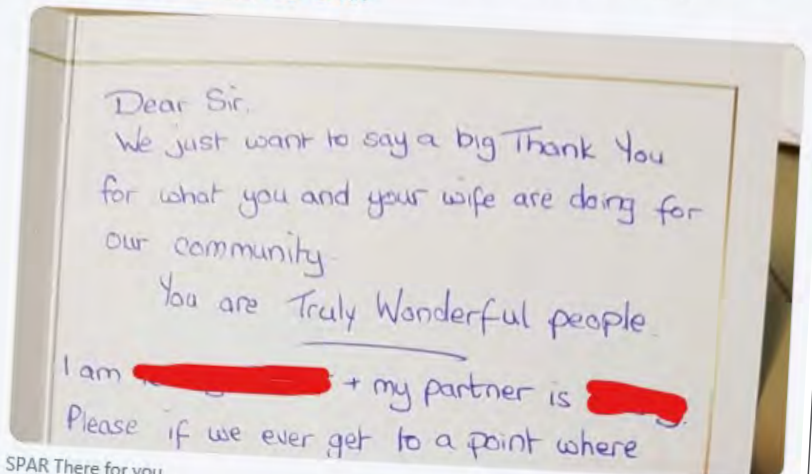 Dear Sir.
We just want to say a big Thank You
for what you and your wife are doing for
our community.
You are Truly Wonderful people.
I am + my partner is
Please if we ever get to a point where
SPAR There for you